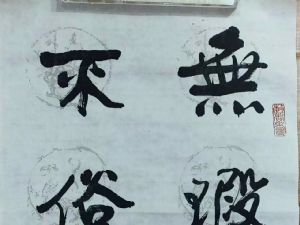 無瑕
不俗